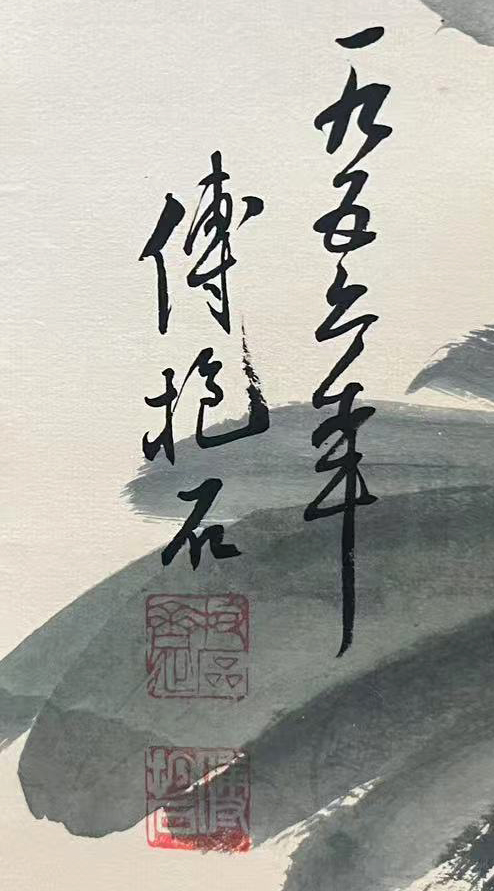 一九五六年
傅抱石